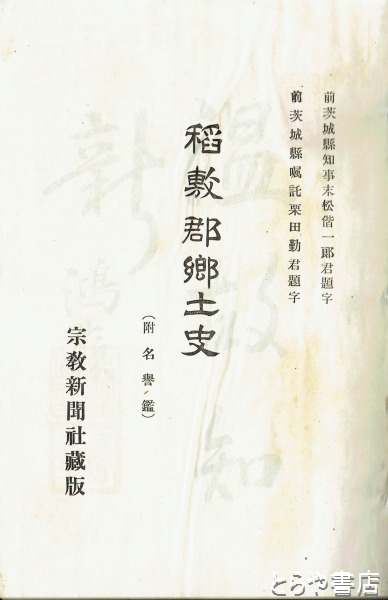 前茨城縣知事末松偕一郎君題字
前茨城縣囑託栗田勤君題字
稻敷郡鄉土史
（附名譽鑑）
宗敎新聞社藏版
とらや書店